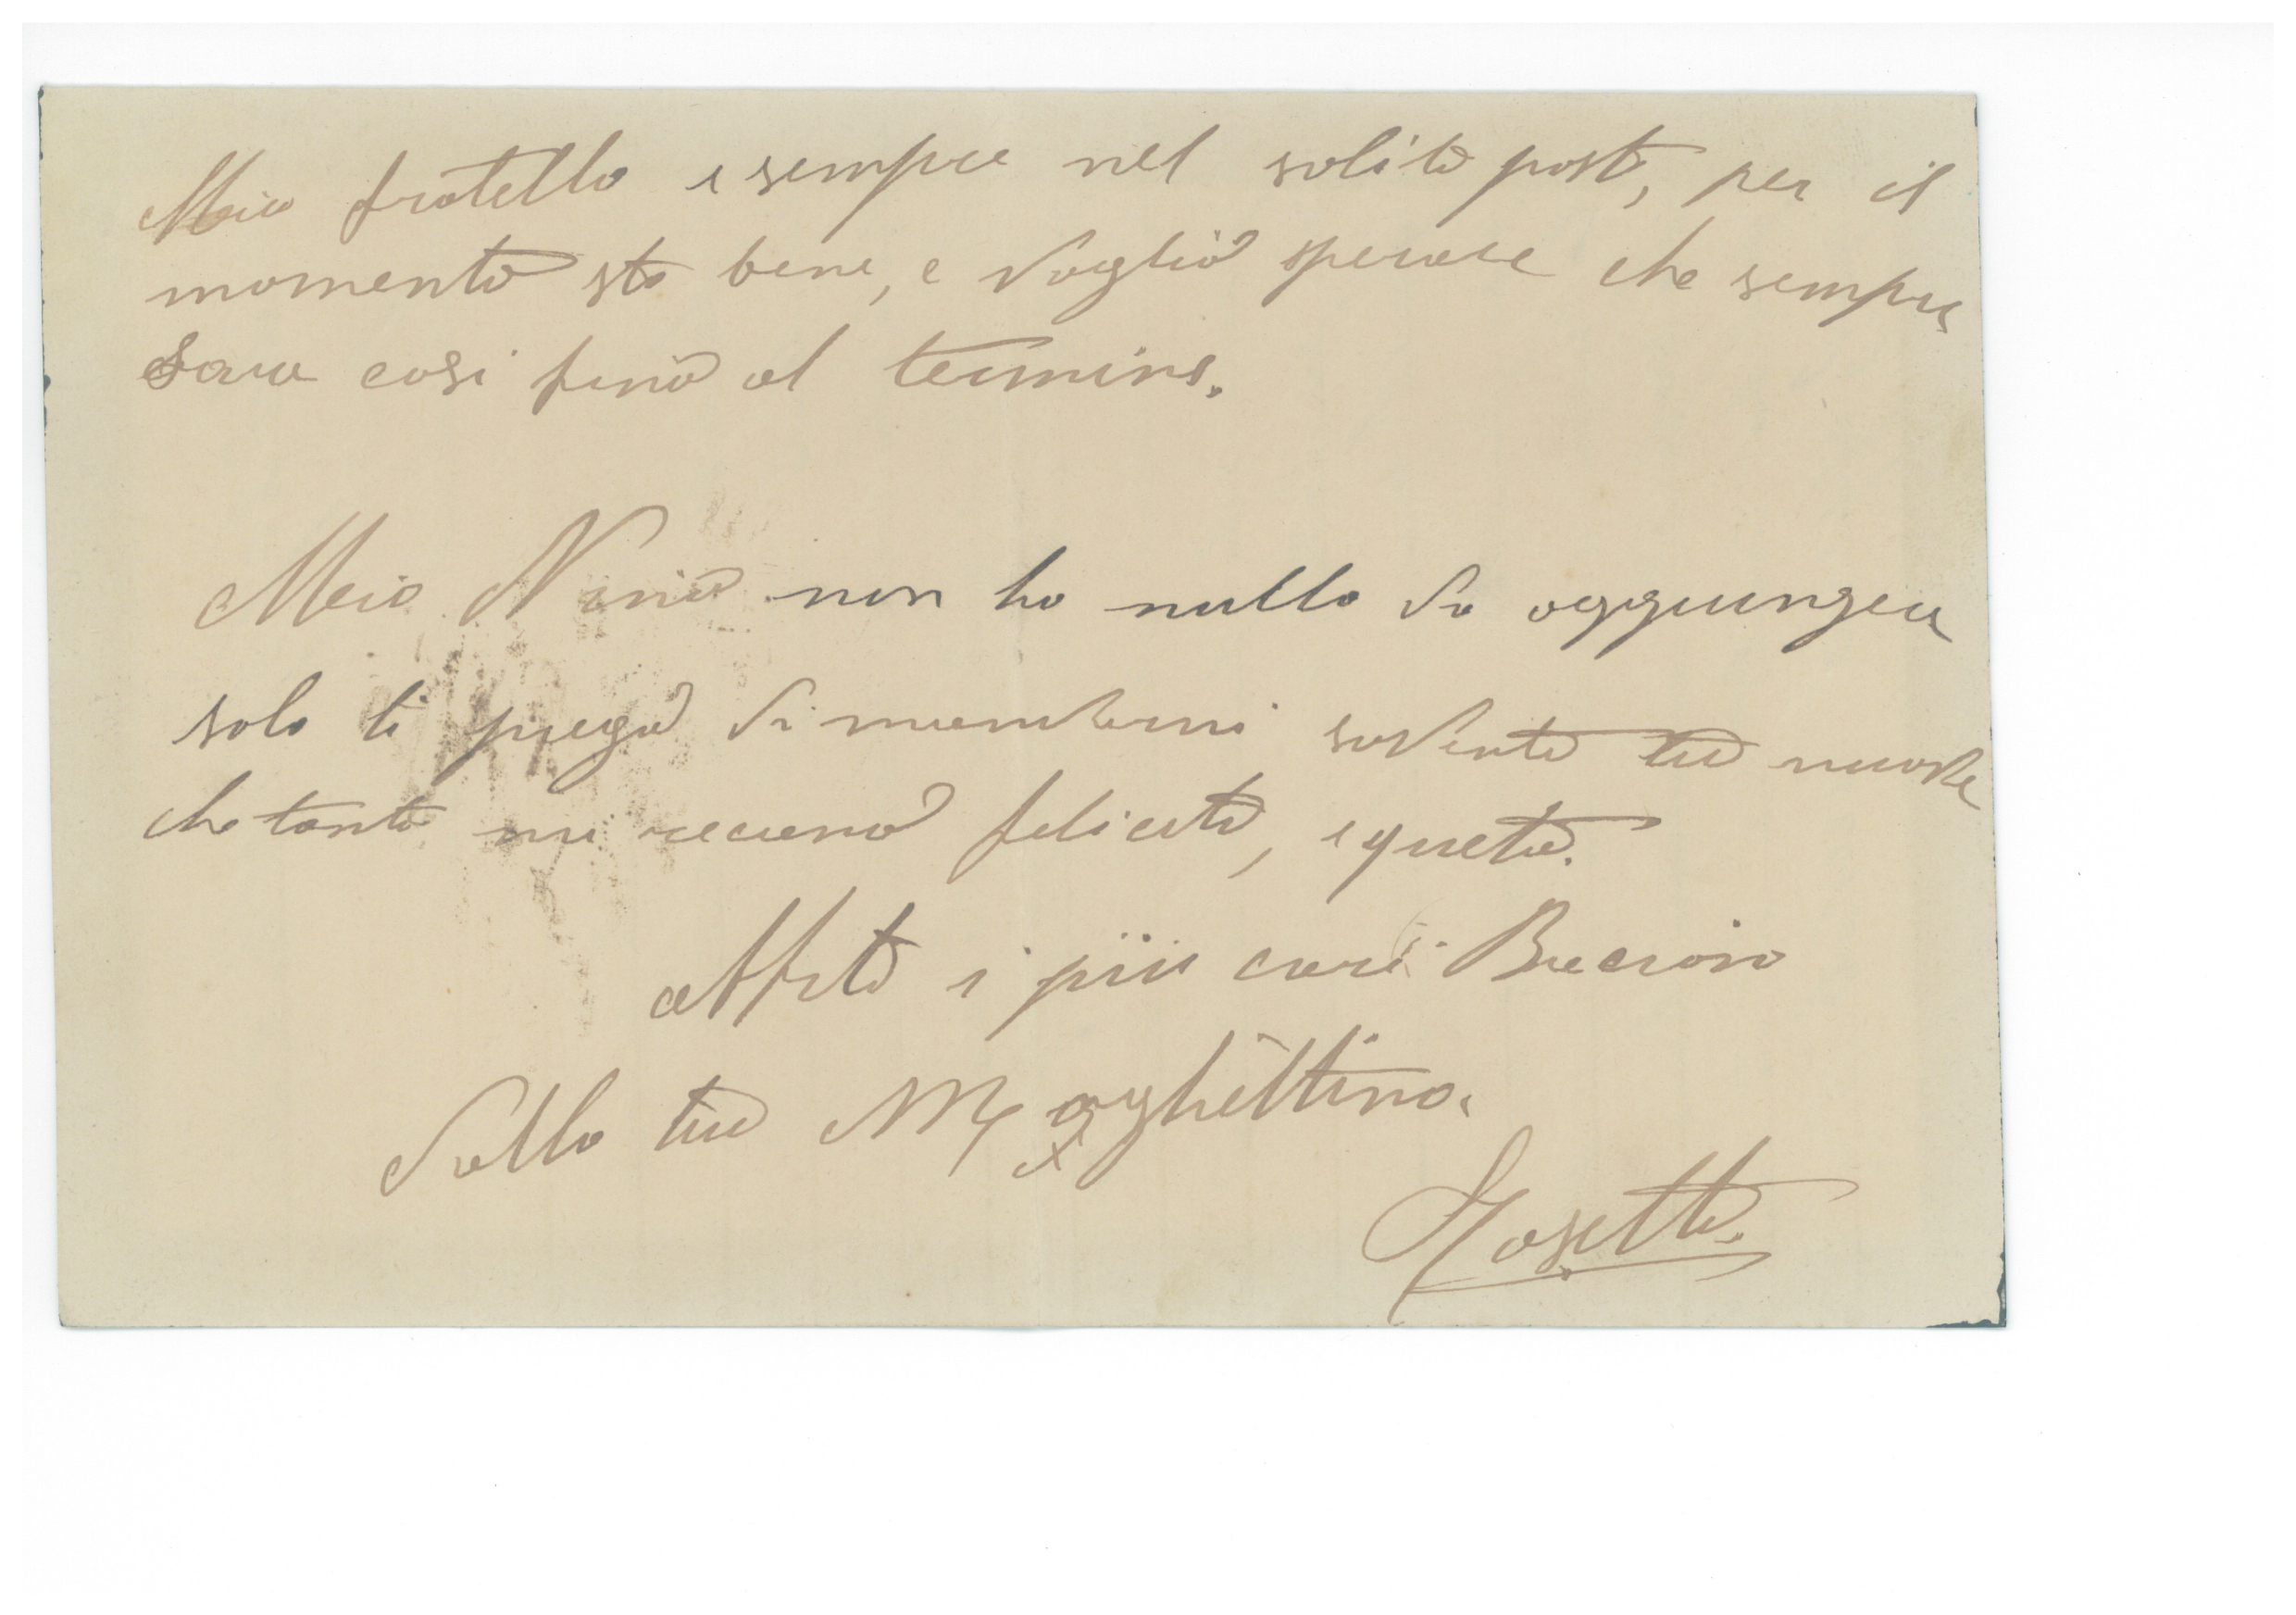 Mio fratello e sempre nel solito posto, per il
momento sta bene, e voglio sperare che sempre
sara cosi fino al termine.
Mio Nino non ho nulla da aggiungere
solo ti prego di mandarmi sovente tue nuove
che tanto mi recano felicità, e quete.
Affetti i più cari Baci
dalla tua Maghettina.
Rosetta.